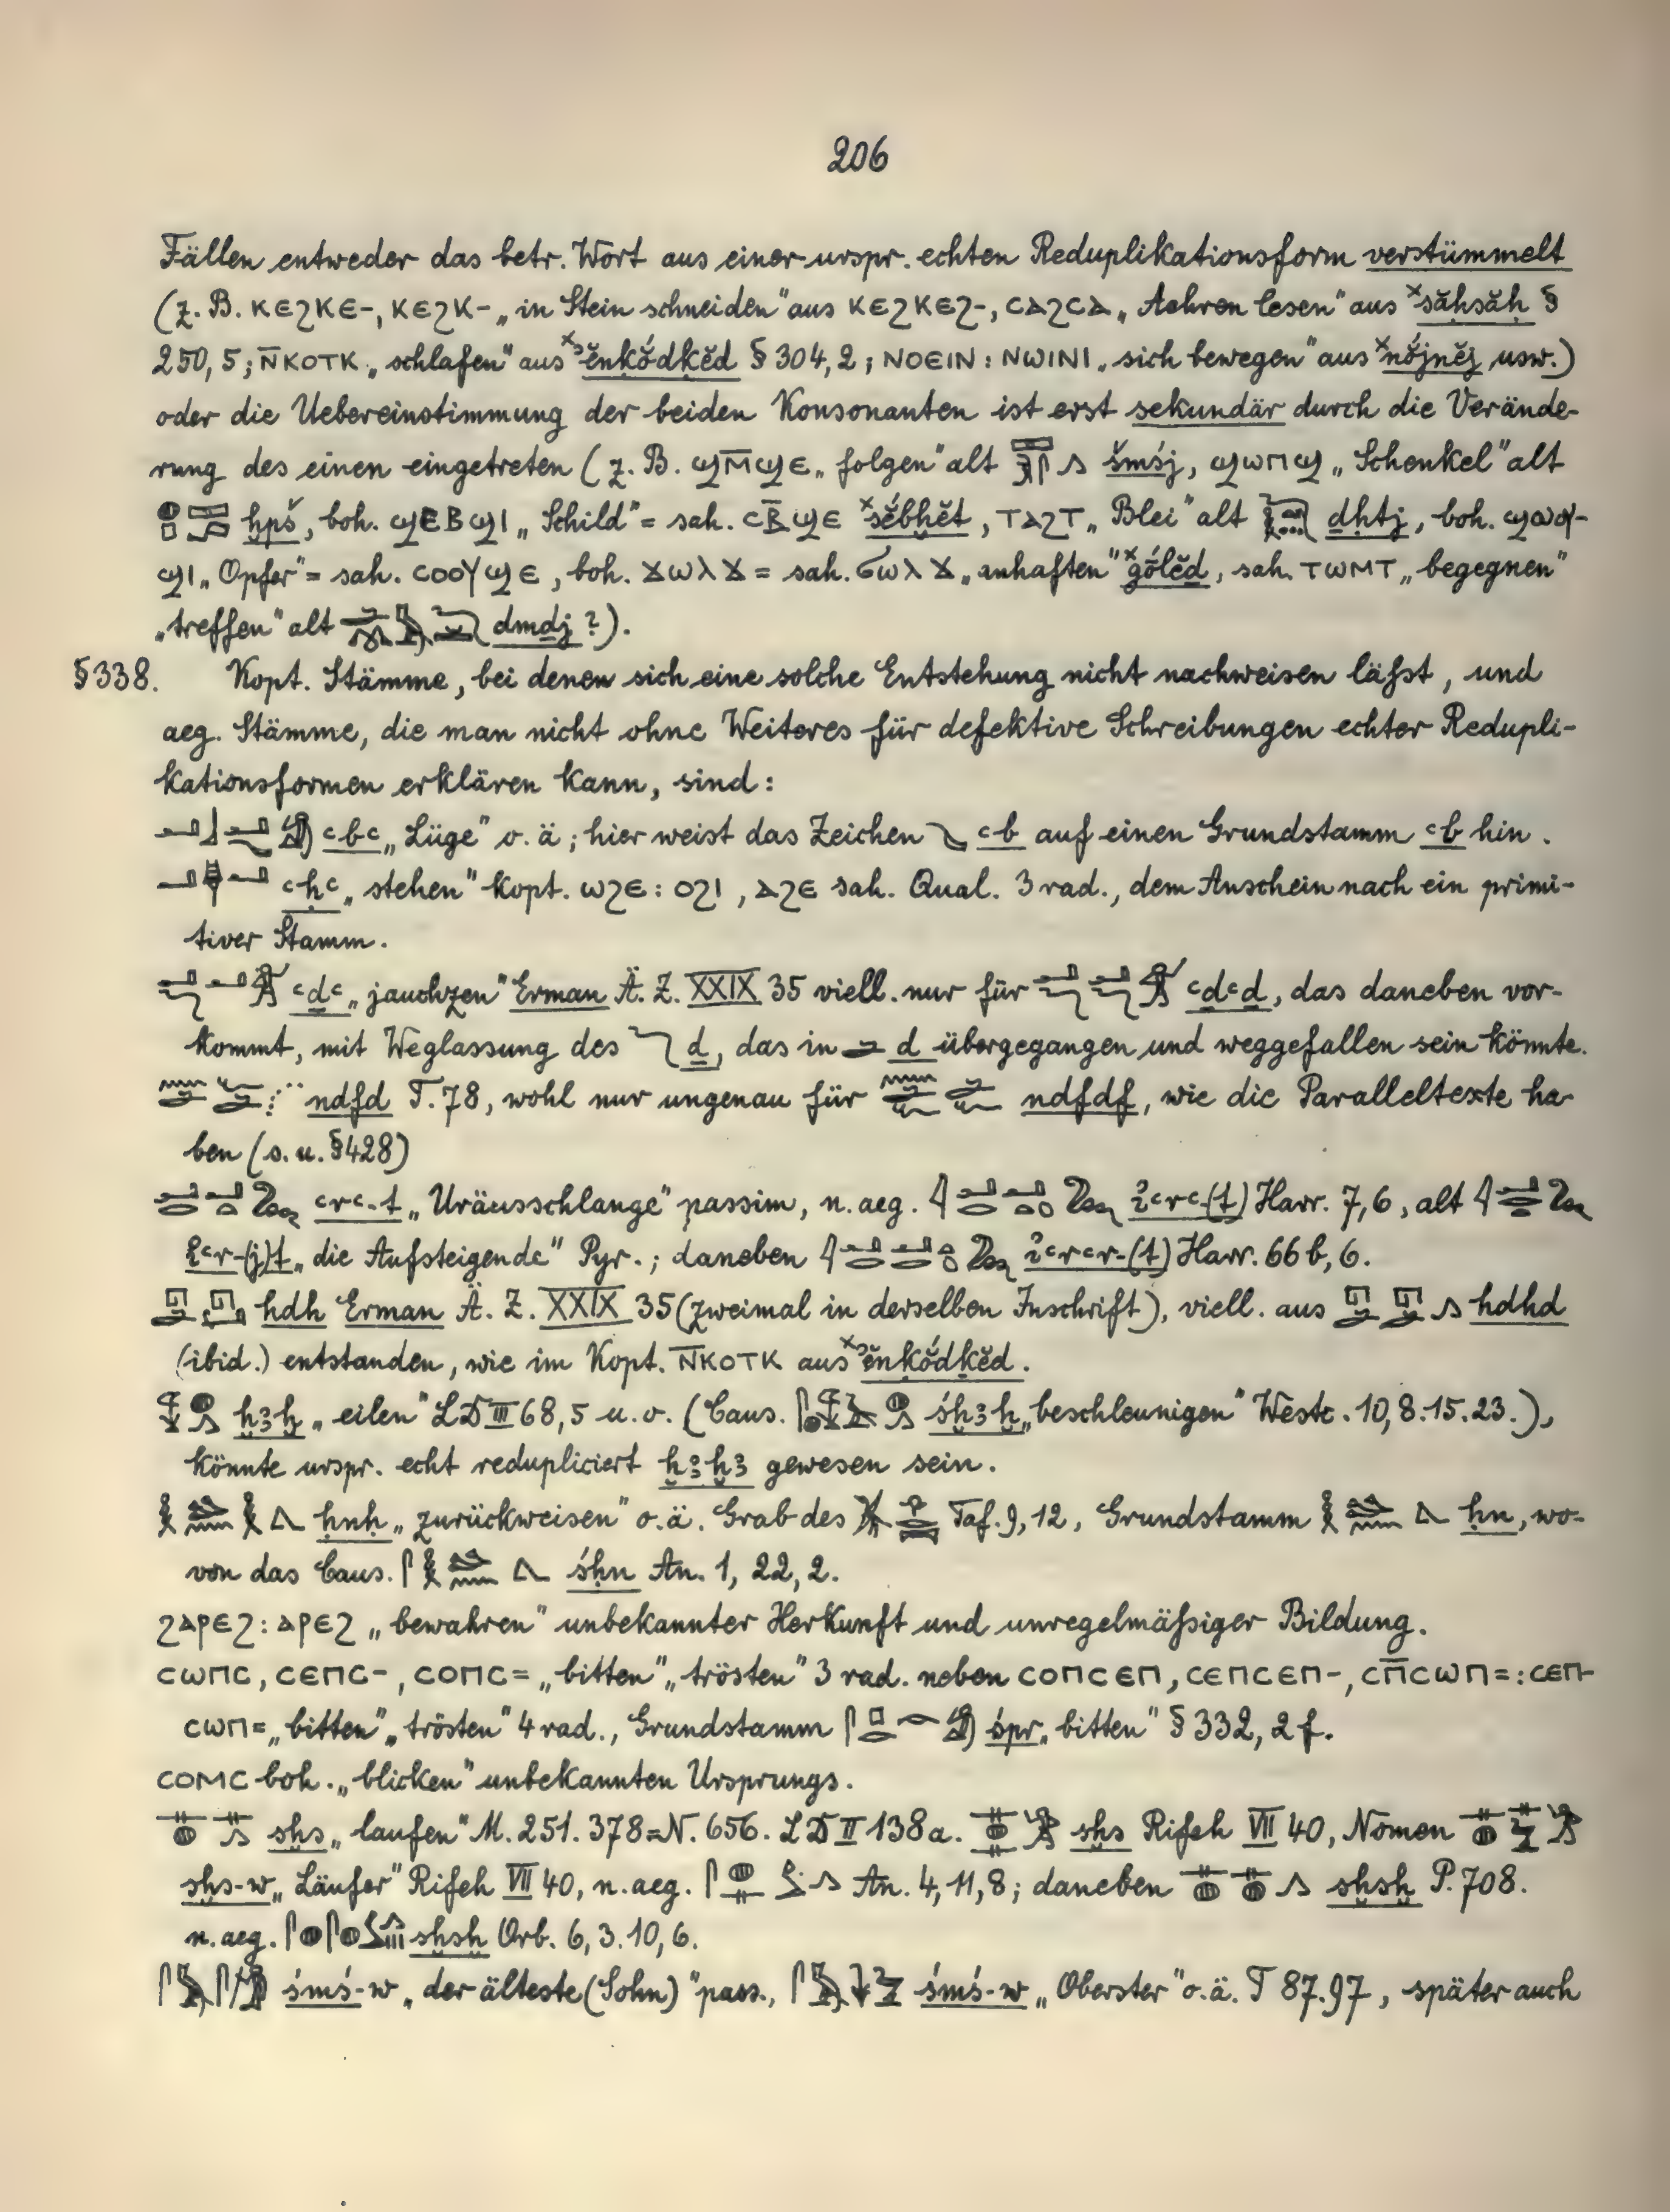 206
Fällen entweder das betr. Wort aus einer urspr. echten Reduplikationsform verstümmelt
(z. B. ⲕⲉϩⲕⲉ-, ⲕⲉϩⲕ- „in Stein schneiden" aus ⲕⲉϩⲕⲉϩ-, ⲥⲁϩⲥⲁ „Aehren lesen" aus ˣsăḥsăḥ §
250, 5; ⲛ̄ⲕⲟⲧⲕ „schlafen" aus ˣʾĕnḳŏ́dḳĕd § 304, 2; ⲛⲟⲉⲓⲛ : ⲛⲱⲓⲛⲓ „sich bewegen" aus ˣnŏ́jnĕj usw.)
oder die Uebereinstimmung der beiden Konsonanten ist erst sekundär durch die Verände-
rung des einen eingetreten (z. B. ϣⲙ̄ϣⲉ „folgen" alt šmśj, ϣⲱⲡϣ „Schenkel" alt
ḫpš, boh. ϣⲉⲃϣⲓ „Schild" = sah. ⲥⲃ̄ϣⲉ ˣsĕ́bḫĕt, ⲧⲁϩⲧ „Blei" alt ḏḥtj, boh. ϣⲱⲟⲩ-
ϣⲓ „Opfer" = sah. ⲥⲟⲟⲩϣⲉ, boh. ϫⲱⲗϫ = sah. ϭⲱⲗϫ „anhaften" ˣgólĕḏ, sah. ⲧⲱⲙⲧ „begegnen"
„treffen" alt dmḏj ?).
§338. Kopt. Stämme, bei denen sich eine solche Entstehung nicht nachweisen läſst, und
aeg. Stämme, die man nicht ohne Weiteres für defektive Schreibungen echter Redupli-
kationsformen erklären kann, sind:
ꜥbꜥ „Lüge" o. ä; hier weist das Zeichen ꜥb auf einen Grundstamm ꜥb hin.
ꜥḥꜥ „stehen" kopt. ⲱϩⲉ : ⲟϩⲓ, ⲁϩⲉ sah. Qual. 3 rad., dem Anschein nach ein primi-
tiver Stamm.
ꜥḏꜥ „jauchzen" Erman Ä. Z. XXIX 35 viell. nur für ꜥḏꜥḏ, das daneben vor-
kommt, mit Weglassung des ḏ, das in d übergegangen und weggefallen sein könnte.
ndfd T. 78, wohl nur ungenau für ndfdf, wie die Paralleltexte ha-
ben (s. u. §428)
ꜥrꜥ-t „Uräusschlange" passim, n. aeg. ỉꜥrꜥ(t) Harr. 7, 6, alt
ỉꜥr-(j)t „die Aufsteigende" Pyr.; daneben ỉꜥrꜥr-(t) Harr. 66 b, 6.
hdh Erman Ä. Z. XXIX 35 (zweimal in derselben Inschrift), viell. aus hdhd
(ibid.) entstanden, wie im Kopt. ⲛ̄ⲕⲟⲧⲕ aus ˣʾĕnḳŏ́dḳĕd.
ḫꜣḫ „eilen" LD III 68, 5 u. o. (Caus. śḫꜣḫ „beschleunigen" Westc. 10, 8. 15. 23.),
könnte urspr. echt redupliciert ḫꜣḫꜣ gewesen sein.
ḥnḥ „zurückweisen" o. ä. Grab des Taf. 9, 12, Grundstamm ḥn, wo-
von das Caus. śḥn An. 1, 22, 2.
ϩⲁⲣⲉϩ : ⲁⲣⲉϩ „bewahren" unbekannter Herkunft und unregelmäſsiger Bildung.
ⲥⲱⲡⲥ, ⲥⲉⲡⲥ-, ⲥⲟⲡⲥ= „bitten" „trösten" 3 rad. neben ⲥⲟⲡⲥⲉⲡ, ⲥⲉⲡⲥⲉⲡ-, ⲥⲡ̄ⲥⲱⲡ= : ⲥⲉⲡ-
ⲥⲱⲡ= „bitten" „trösten" 4 rad., Grundstamm śpr „bitten" § 332, 2 f.
ⲥⲟⲙⲥ boh. „blicken" unbekannten Ursprungs.
sḫs „laufen" M. 251. 378 = N. 656. LD II 138 a. sḫs Rifeh VII 40, Nomen
sḫs-w „Läufer" Rifeh VII 40, n. aeg. An. 4, 11, 8; daneben sḫsḫ P. 708.
n. aeg. sḫsḫ Orb. 6, 3. 10, 6.
śmś-w „der älteste (Sohn)" pass., śmś-w „Oberster" o. ä. T 87. 97, später auch